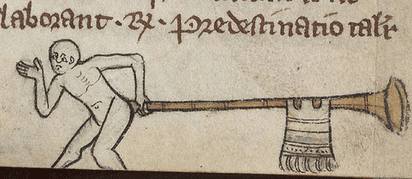 laborant . R. Predestinatio talis